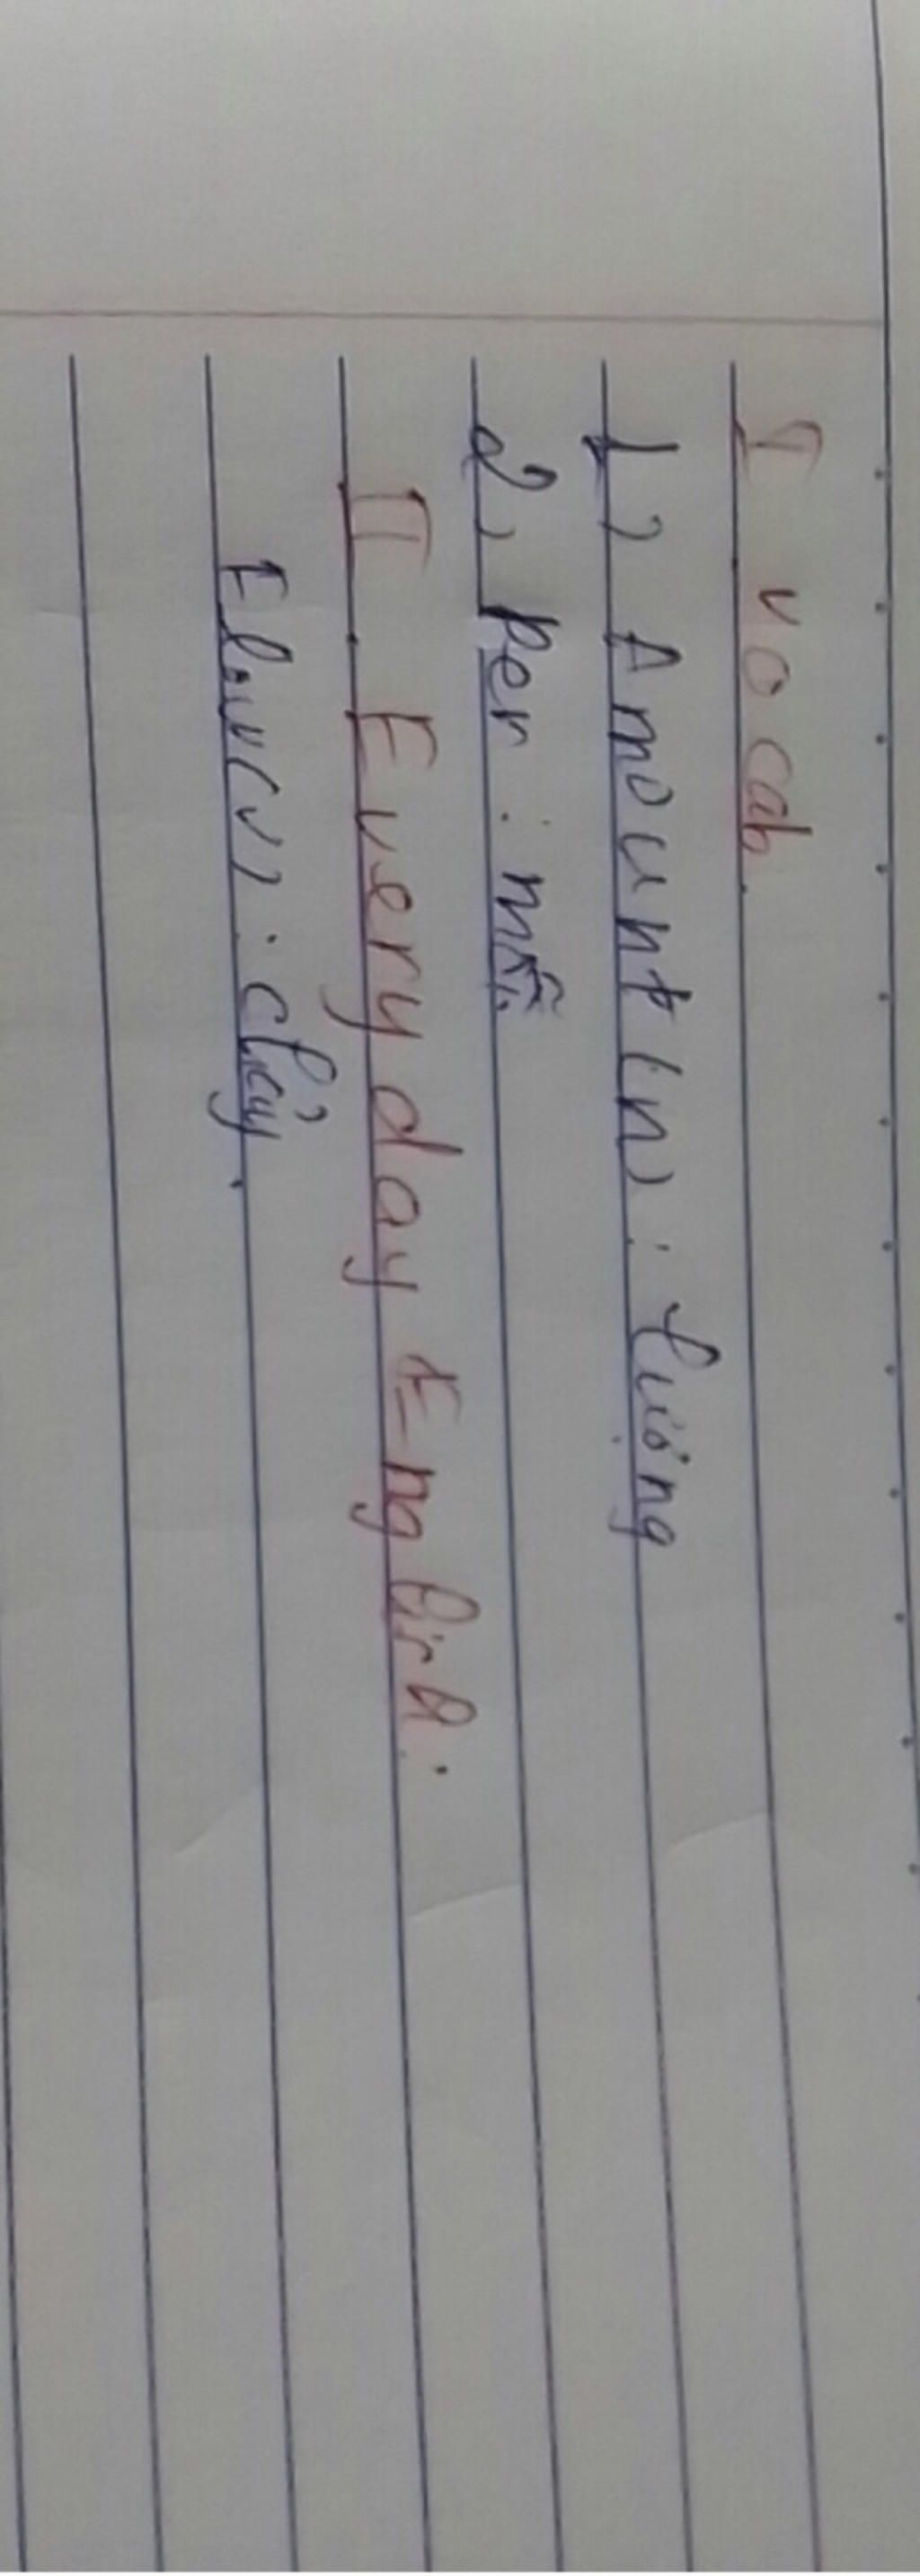 I vocab
1) Amount (n): lượng
2) Per: mỗi
II Everyday English.
Flow (v): chảy.